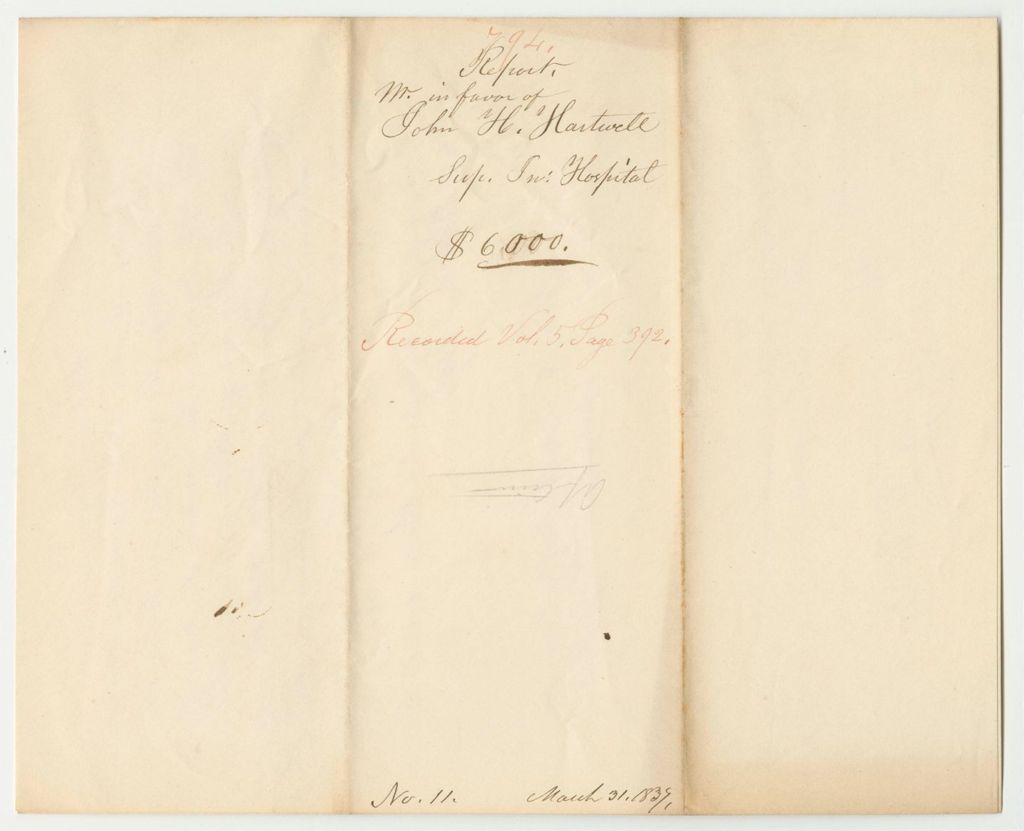 794.
Report.
Wr. in favor of
John H. Hartwell
Sup. In: Hospital
$ 6000.
Recorded Vol. 5, Page 392.
No. 11. March 31. 1839,